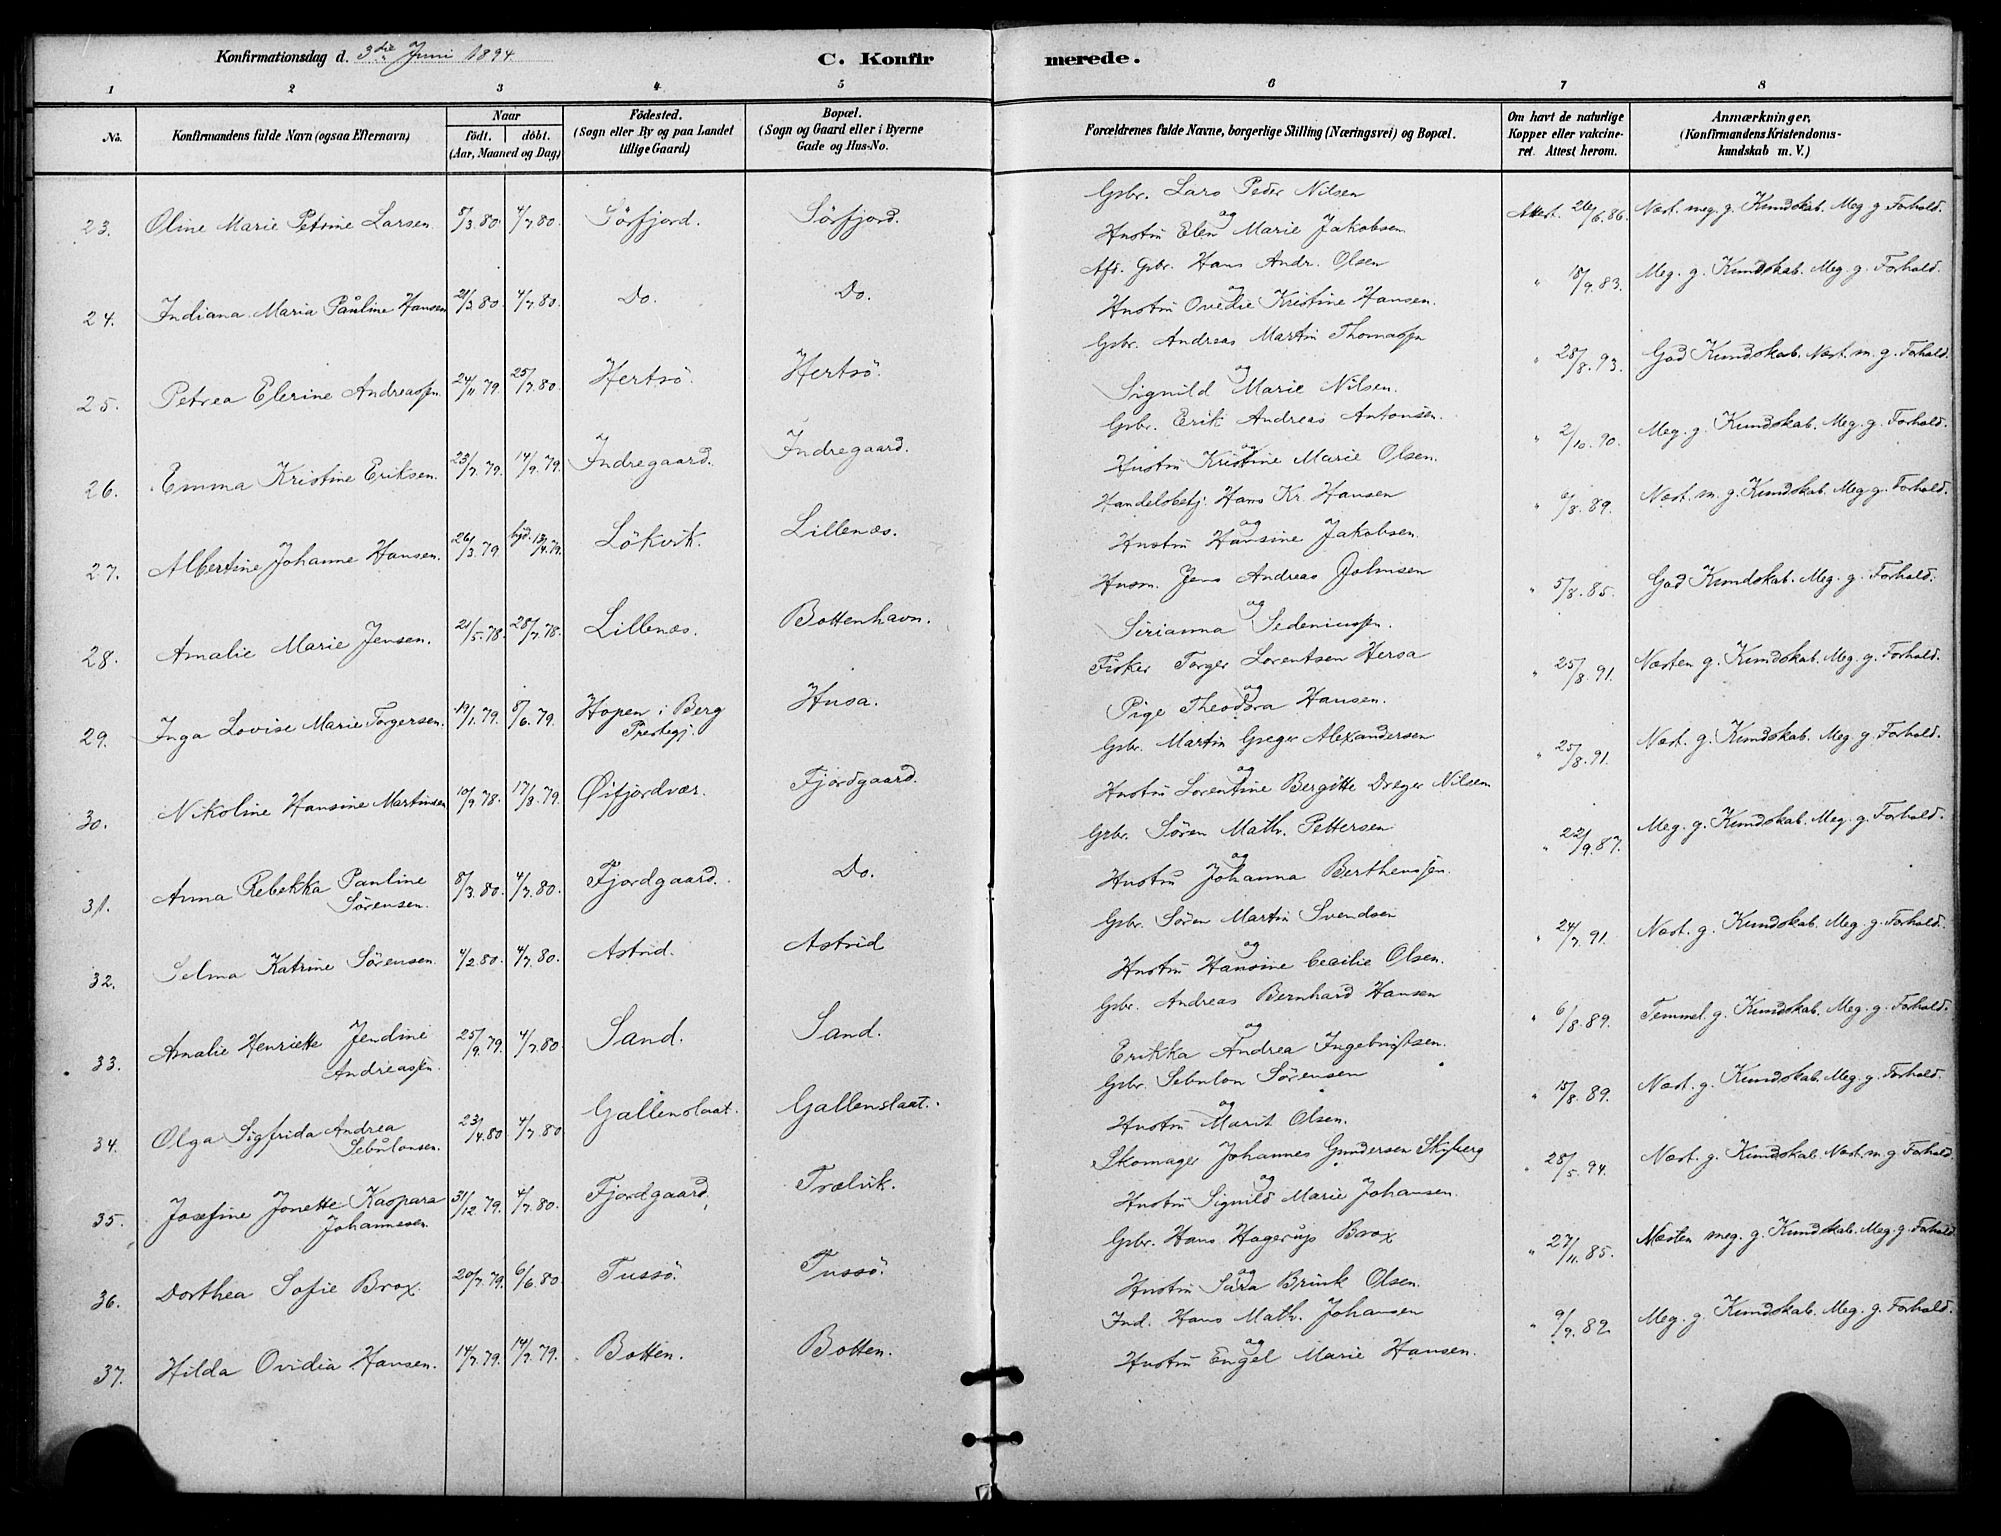 Konfirmationsdag d. 3die Juni 1894
C. Konfir merede.
1 2 3 4 5 6 7 8
No. Konfirmandens fulde Navn (ogsaa Efternavn) Naar födt. döbt. (Aar, Maaned og Dag) Födested. (Sogn eller By og paa Landet tillige Gaard) Bopæl. (Sogn og Gaard eller i Byerne Gade og Hus-No. Forældrenes fulde Navne, borgerlige Stilling (Næringsvei) og Bopæl. Om havt de naturlige Kopper eller vakcineret. Attest herom. Anmærkninger, (Konfirmandens Kristendomskundskab m. V.)
Gsbr. Lars Peder Nilsen
23. Oline Marie Petrine Larsen. 8/3.80. 4/7.80. Sörfjord. Sörfjord. og Attest. 26/6.86. Næst. meg. g. Kundskab. Meg g Forhold.
Hustru Elen Marie Jakobsen
Afd. Gsbr. Hans Andr. Olsen
24. Indiana Maria Pauline Hansen 21/3.80. 4/7.80. Do. Do. og " 18/9.83. Meg. g. Kundskab. Meg. g. Forhold.
Hustru Ovedie Kristine Hansen.
Gsbr. Andreas Martin Thomassen
25. Petrea Elerine Andreassen. 24/11.79. 25/7.80. Hertsö. Hertsö. og " 28/8.93. God Kundskab. Næst. m. g. Forhold.
Signild Marie Nilsen.
Gsbr. Erik Andreas Antonsen.
26. Emma Kristine Eriksen. 23/7.79. 14/9.79. Indregaard. Indregaard. og " 2/10.90. Meg. g. Kundskab. Meg. g. Forhold.
Hustru Kristine Marie Olsen.
Handelsbetj. Hans Kr. Hansen
27. Albertine Johanne Hansen. 26/3.79. hjd. 13/4.79. Lökvik. Lillenæs. og " 6/8.89. Næst. m. g. Kundskab. Meg g. Forhold.
Hustru Hansine Jakobsen.
Husm. Jens Andreas Johnsen
28. Amalie Marie Jensen. 21/5.78. 28/7.78. Lillenæs. Bottenhavn. og " 5/8.85. God Kundskab. Meg. g. Forhold.
Sirianna Sedeniussen.
Fisker Torger Lorentsen Hersa
29. Inga Lovise Marie Torgersen. 19/1.79. 8/6.79. Hopen i Berg Prestegj. Husa. og " 25/8.91. Næsten g. Kundskab. Meg. g. Forhold.
Pige Theodora Hansen.
Gsbr. Martin Greger Alexandersen
30. Nikoline Hansine Martinsen 10/9.78. 17/8.79. Øifjordvær. Fjordgaard. og " 25/8.91. Næst. g. Kundskab. Meg g. Forhold.
Hustru Lorentine Bergitte Dreyer Nilsen
Gsbr. Sören Math. Pettersen
31. Anna Rebekka Pauline Sörensen. 8/3.80. 4/7.80. Fjordgaard. Do. og " 22/9.87. Meg. g. Kundskab. Meg. g. Forhold.
Hustru Johanna Berthenssen.
Gsbr. Sören Martin Svendsen
32. Selma Katrine Sörensen. 4/2.80. 4/7.80. Astrid. Astrid og " 24/7.91. Næst. g. Kundskab. Meg. g. Forhold.
Hustru Hansine Cecilie Olsen.
Gsbr. Andreas Bernhard Hansen
33. Amalie Henriette Jendine Andreassen. 25/9.79. 4/7.80. Sand. Sand. og " 6/8.89. Temmel. g. Kundskab. Meg. g. Forhold.
Erikka Andrea Ingebrigtsen.
Gsbr. Sebulon Sörensen
34. Olga Sigfrida Andrea Sebulonsen. 23/4.80. 4/7.80. Gallenslaat. Gallenslaat. og " 15/8.89. Næst. g. Kundskab. Meg. g. Forhold.
Hustru Marit Olsen.
Skomager Johannes Gundersen
35. Josefine Jonette Kaspara Johannesen. 31/12.79. 4/7.80. Fjordgaard, Trælvik. og " 28/5.94. Næst. g. Kundskab. Næst. m. g Forhold.
Hustru Signild Marie Johansen.
Gsbr. Hans Hagerup Brox
36. Dorthea Sofie Brox. 20/7.79. 6/6.80. Tussö. Tussö. og " 27/11.85. Næsten meg. g. Kundskab. Meg. g. Forhold.
Hustru Sara Brink Olsen.
Ind. Hans Math. Johansen
37. Hilda Ovidia Hansen. 14/7.79. 14/9.79. Botten. Botten. og " 9/9.82. Meg. g. Kundskab. Meg. g. Forhold.
Hustru Engel Marie Hansen.